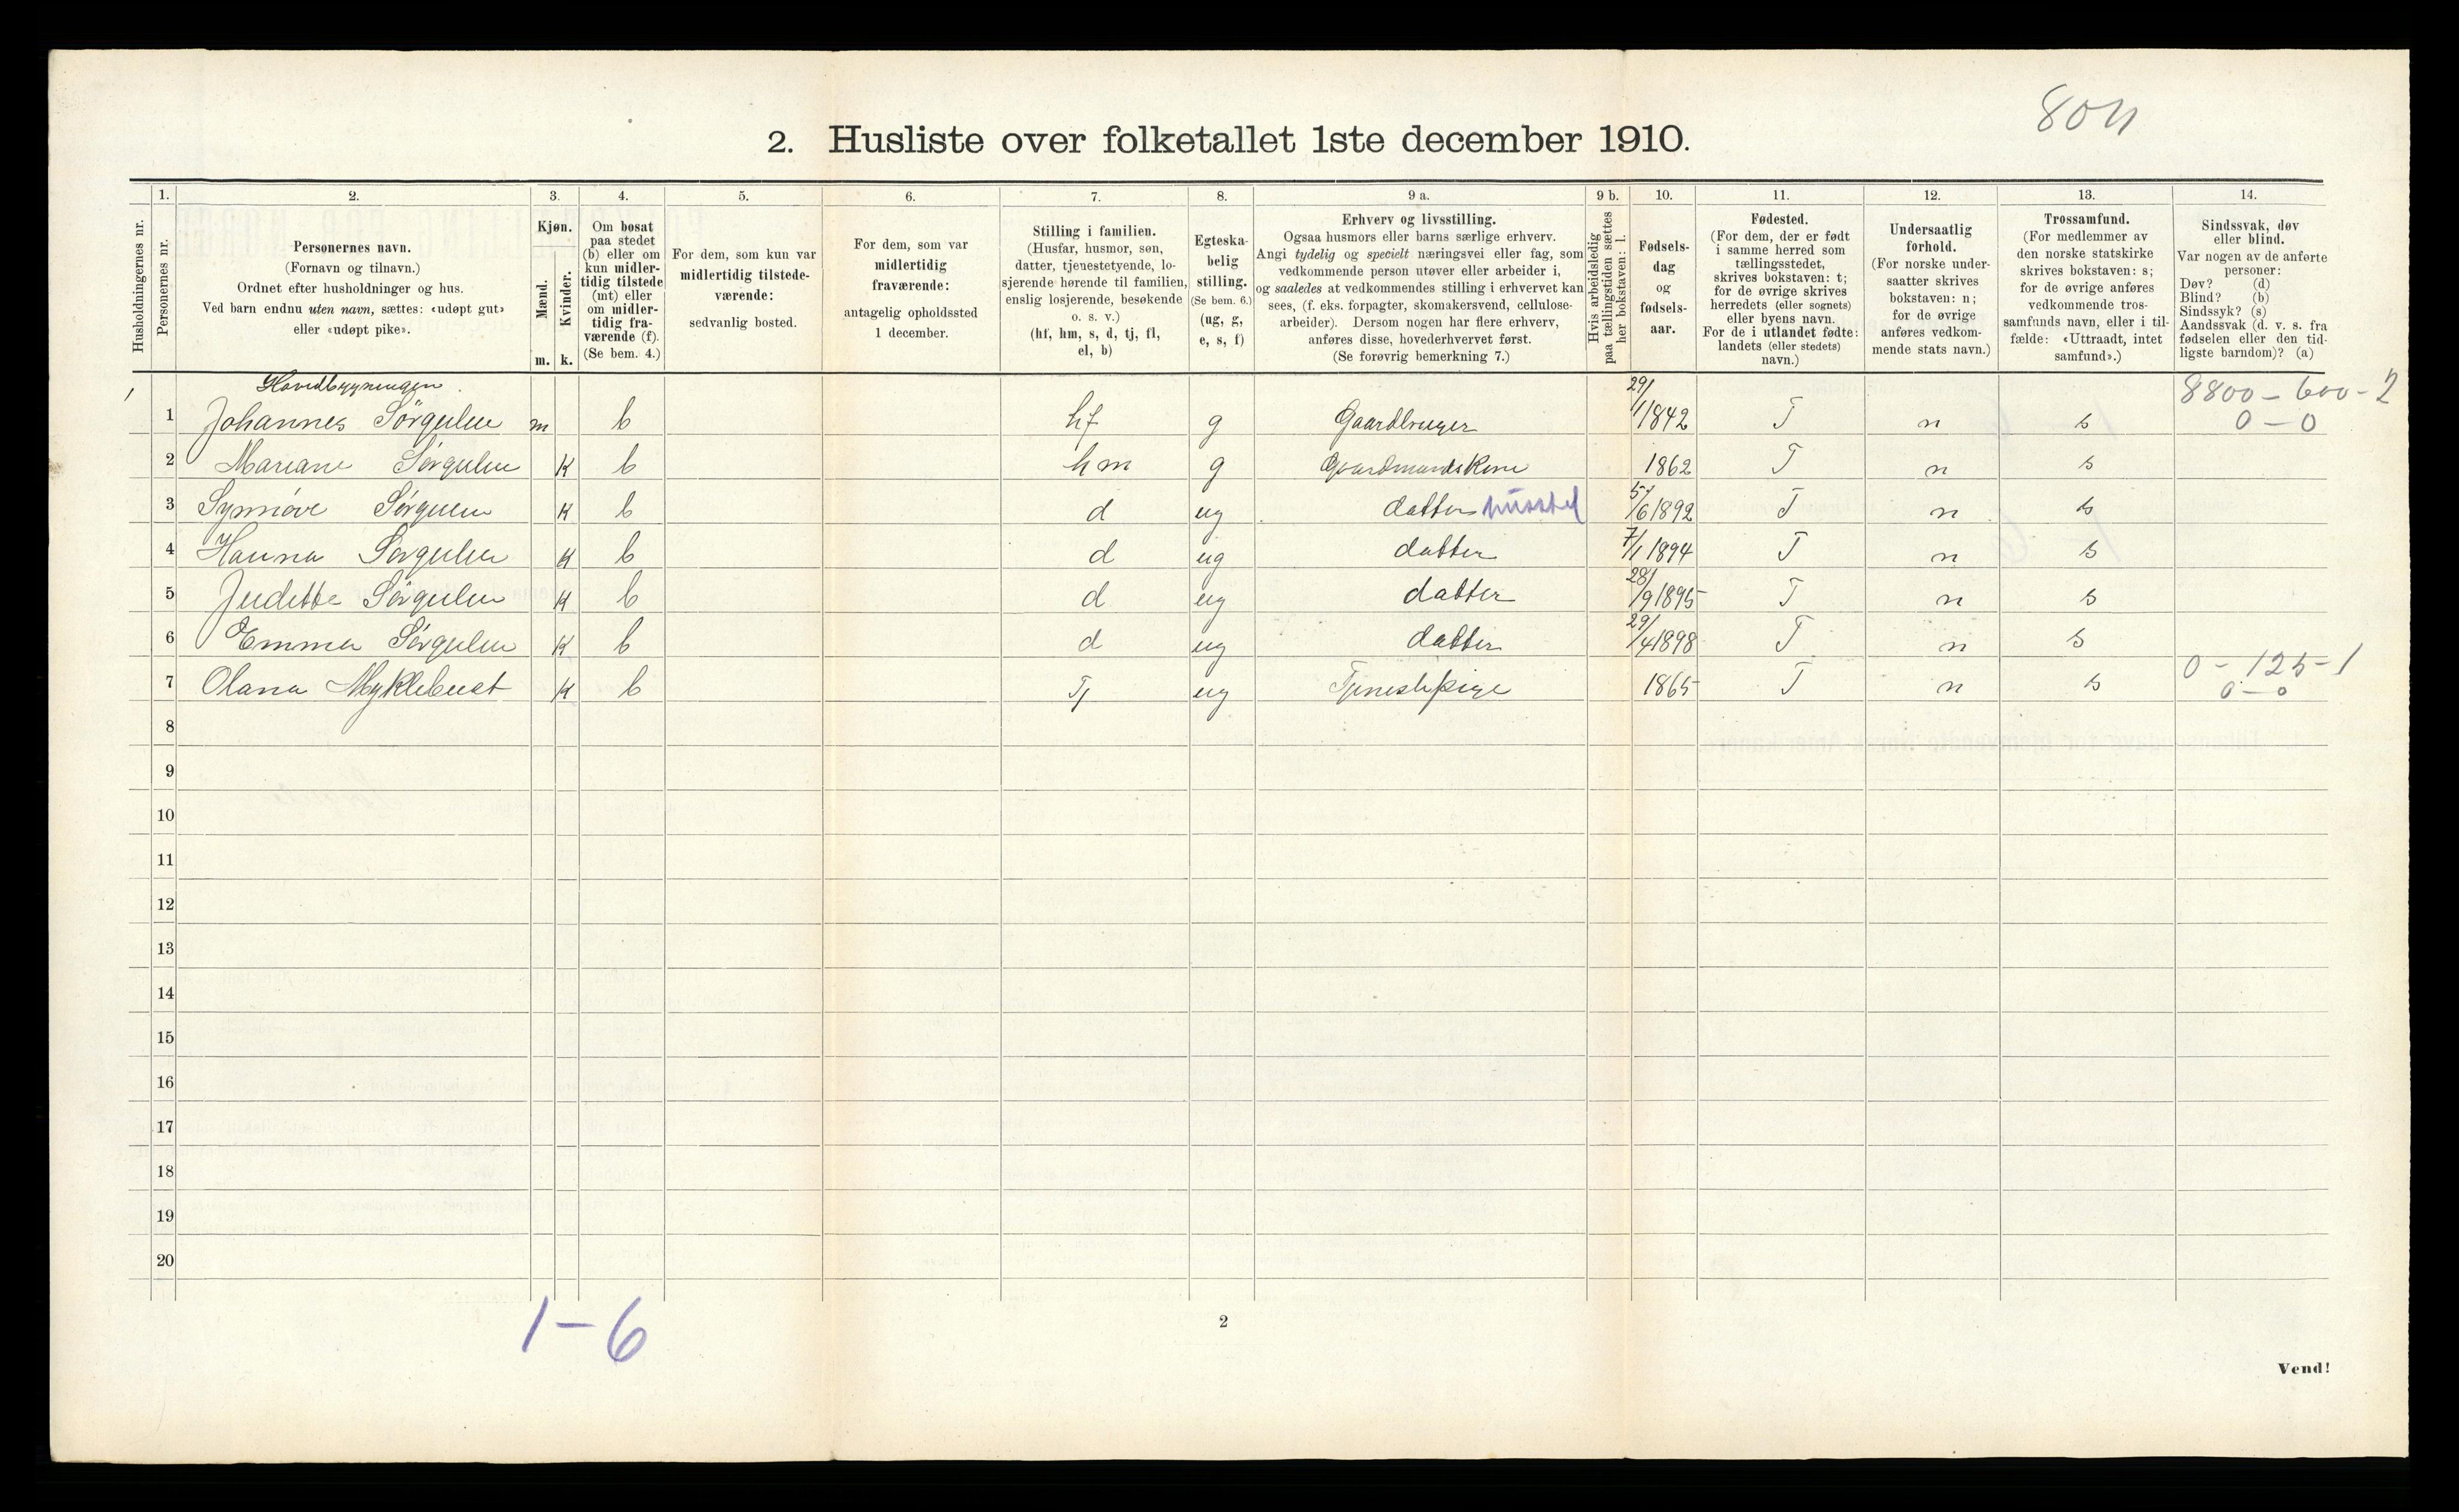 80
2. Husliste over folketallet 1ste december 1910.
1. 2. 3. 4. 5. 6. 7. 8. 9 a. 9 b. 10. 11. 12. 13. 14.
Husholdningernes nr.
Personernes nr.
Personernes navn.
(Fornavn og tilnavn.)
Ordnet efter husholdninger og hus.
Ved barn endnu uten navn, sættes: «udøpt gut»
eller «udøpt pike».
Kjøn.
Mænd.
Kvinder.
m. k.
Om bosat
paa stedet
(b) eller om
kun midler-
tidig tilstede
(mt) eller
om midler-
tidig fra-
værende (f).
(Se bem. 4.)
For dem, som kun var
midlertidig tilstede-
værende:
sedvanlig bosted.
For dem, som var
midlertidig
fraværende:
antagelig opholdssted
1 december.
Stilling i familien.
(Husfar, husmor, søn,
datter, tjenestetyende, lo-
sjerende hørende til familien,
enslig losjerende, besøkende
o. s. v.)
(hf, hm, s, d, tj, fl,
el, b)
Egteska-
belig
stilling.
(Se bem. 6.)
(ug, g,
e, s, f)
Erhverv og livsstilling.
Ogsaa husmors eller barns særlige erhverv.
Angi tydelig og specielt næringsvei eller fag, som
vedkommende person utøver eller arbeider i,
og saaledes at vedkommendes stilling i erhvervet kan
sees, (f. eks. forpagter, skomakersvend, cellulose-
arbeider). Dersom nogen har flere erhverv,
anføres disse, hovederhvervet først.
(Se forøvrig bemerkning 7.)
Hvis arbeidsledig
paa tællingstiden sættes
her bokstaven: l.
Fødsels-
dag
og
fødsels-
aar.
Fødested.
(For dem, der er født
i samme herred som
tællingsstedet,
skrives bokstaven: t;
for de øvrige skrives
herredets (eller sognets)
eller byens navn.
For de i utlandet fødte:
landets (eller stedets)
navn.)
Undersaatlig
forhold.
(For norske under-
saatter skrives
bokstaven: n;
for de øvrige
anføres vedkom-
mende stats navn.)
Trossamfund.
(For medlemmer av
den norske statskirke
skrives bokstaven: s;
for de øvrige anføres
vedkommende tros-
samfunds navn, eller i til-
fælde: «Uttraadt, intet
samfund».)
Sindssvak, døv
eller blind.
Var nogen av de anførte
personer:
Døv? (d)
Blind? (b)
Sindssyk? (s)
Aandssvak (d. v. s. fra
fødselen eller den tid-
ligste barndom)? (a)
Hovedbygningen 8800 - 600 - 2
1 1 Johannes Sørgulen m b hf g Gaardbruger 29/1 1842 T n s 0 - 0
2 Mariane Sørgulen K b hm g Gaardmandskone 1862 T n s
3 Synnøve Sørgulen K b d ug datter husstel 5/6 1892 T n s
4 Hanna Sørgulen K b d ug datter 7/1 1894 T n s
5 Juditte Sørgulen K b d ug datter 28/9 1895 T n s
6 Emma Sørgulen K b d ug datter 29/4 1898 T n s
7 Olana Myklebust K b Tj ug Tjenestepige 1865 T n s 0 - 125 - 1
0 - 0
8
9
10
11
12
13
14
15
16
17
18
19
20
1 - 6
2
Vend!